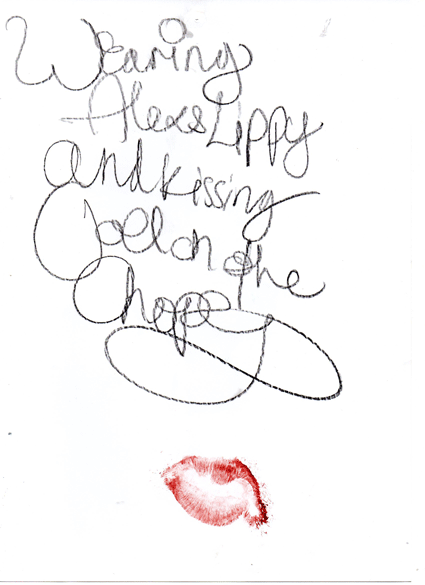 Wearing
Alexs Lippy
and kissing
Joel on the
chops!